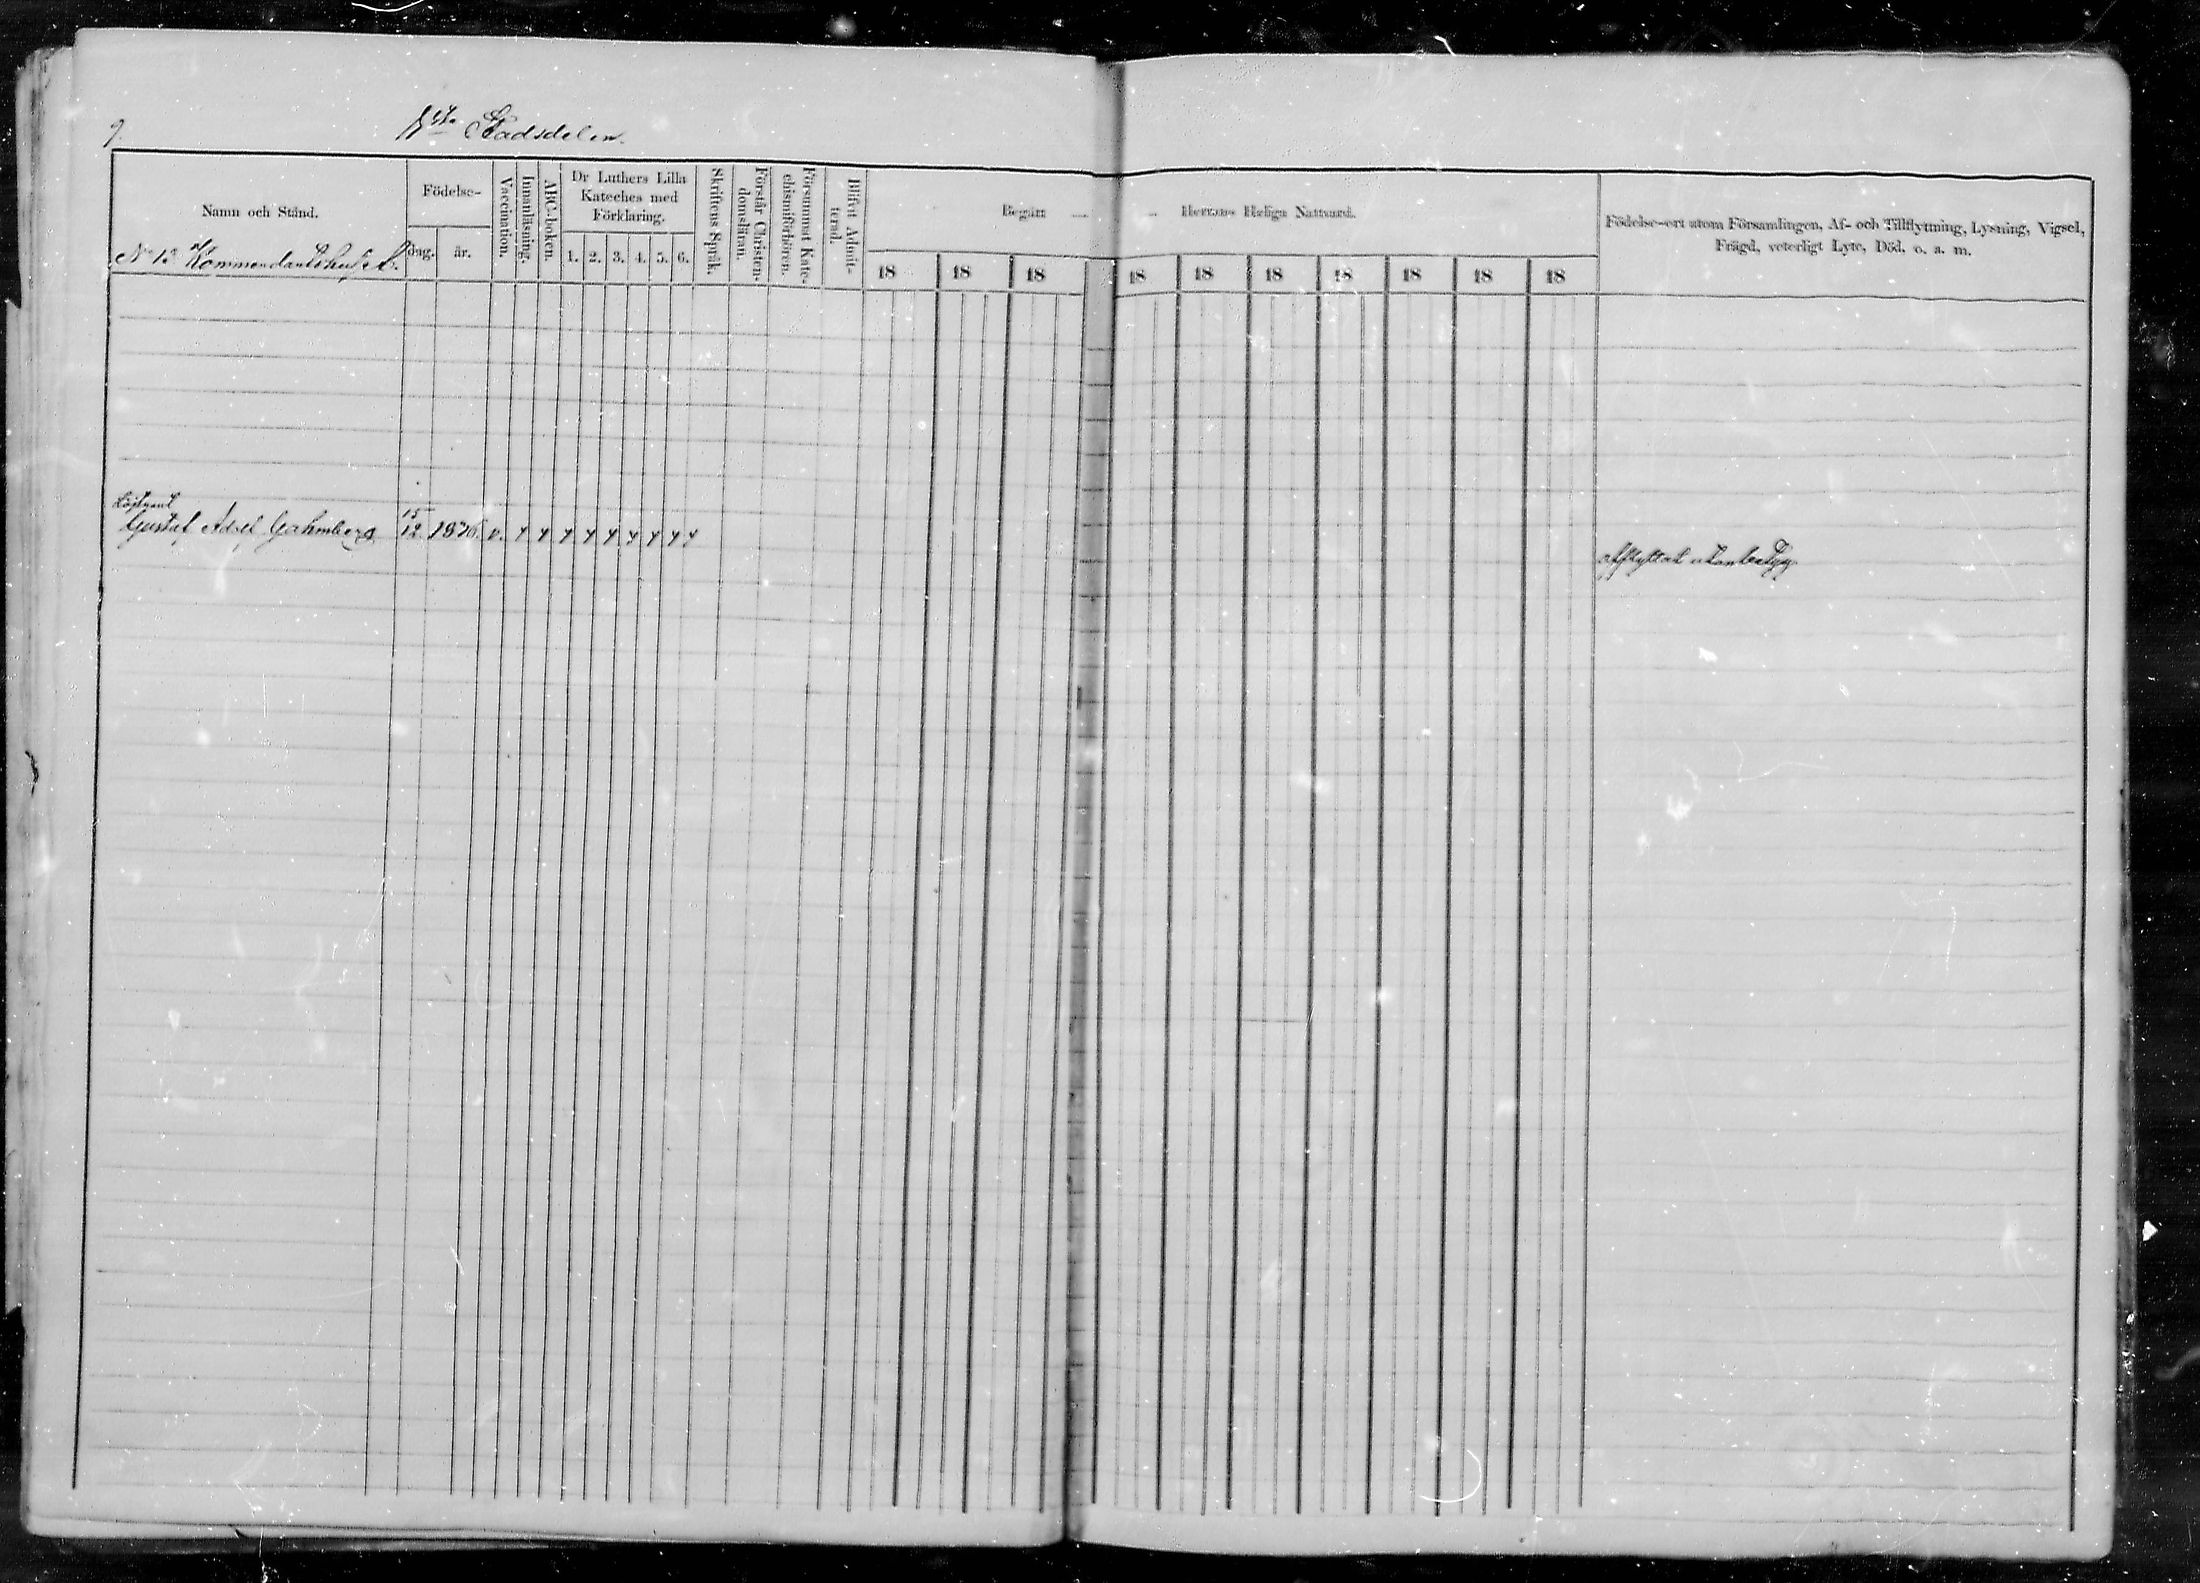 9.
1sta Stadsdelen.
Namn och Stånd.
No 13 Kommendantshuset.
Födelse-
dag. år.
Vaccination.
Innanläsning.
ABC-boken.
Dr Luthers Lilla
Kateches med
Förklaring.
1. 2. 3. 4. 5. 6.
Skriftens Språk.
Förstår Christen-
domsläran.
Försummat Kate-
chismiförhören.
Blifvit Admit-
terad.
Begått
Herrans Heliga Nattvard.
18 18 18 18 18 18 18 18 18 18
Födelse-ort utom Församlingen, Af- och Tillflyttning, Lysning, Vigsel,
Frägd, veterligt Lyte, Död, o. a. m.
Löjtnant
Gustaf Adolf 15/12 18 v.
afflyttat utan betyg